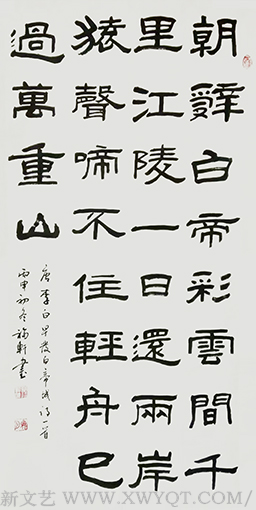 朝辤白帝彩雲間千
里江陵一日還兩岸
猿聲啼不住軽舟已
過萬重山
唐李白早發白帝城詩一首
丙申初冬軒書
新文艺 WWW.XWYQT.COM